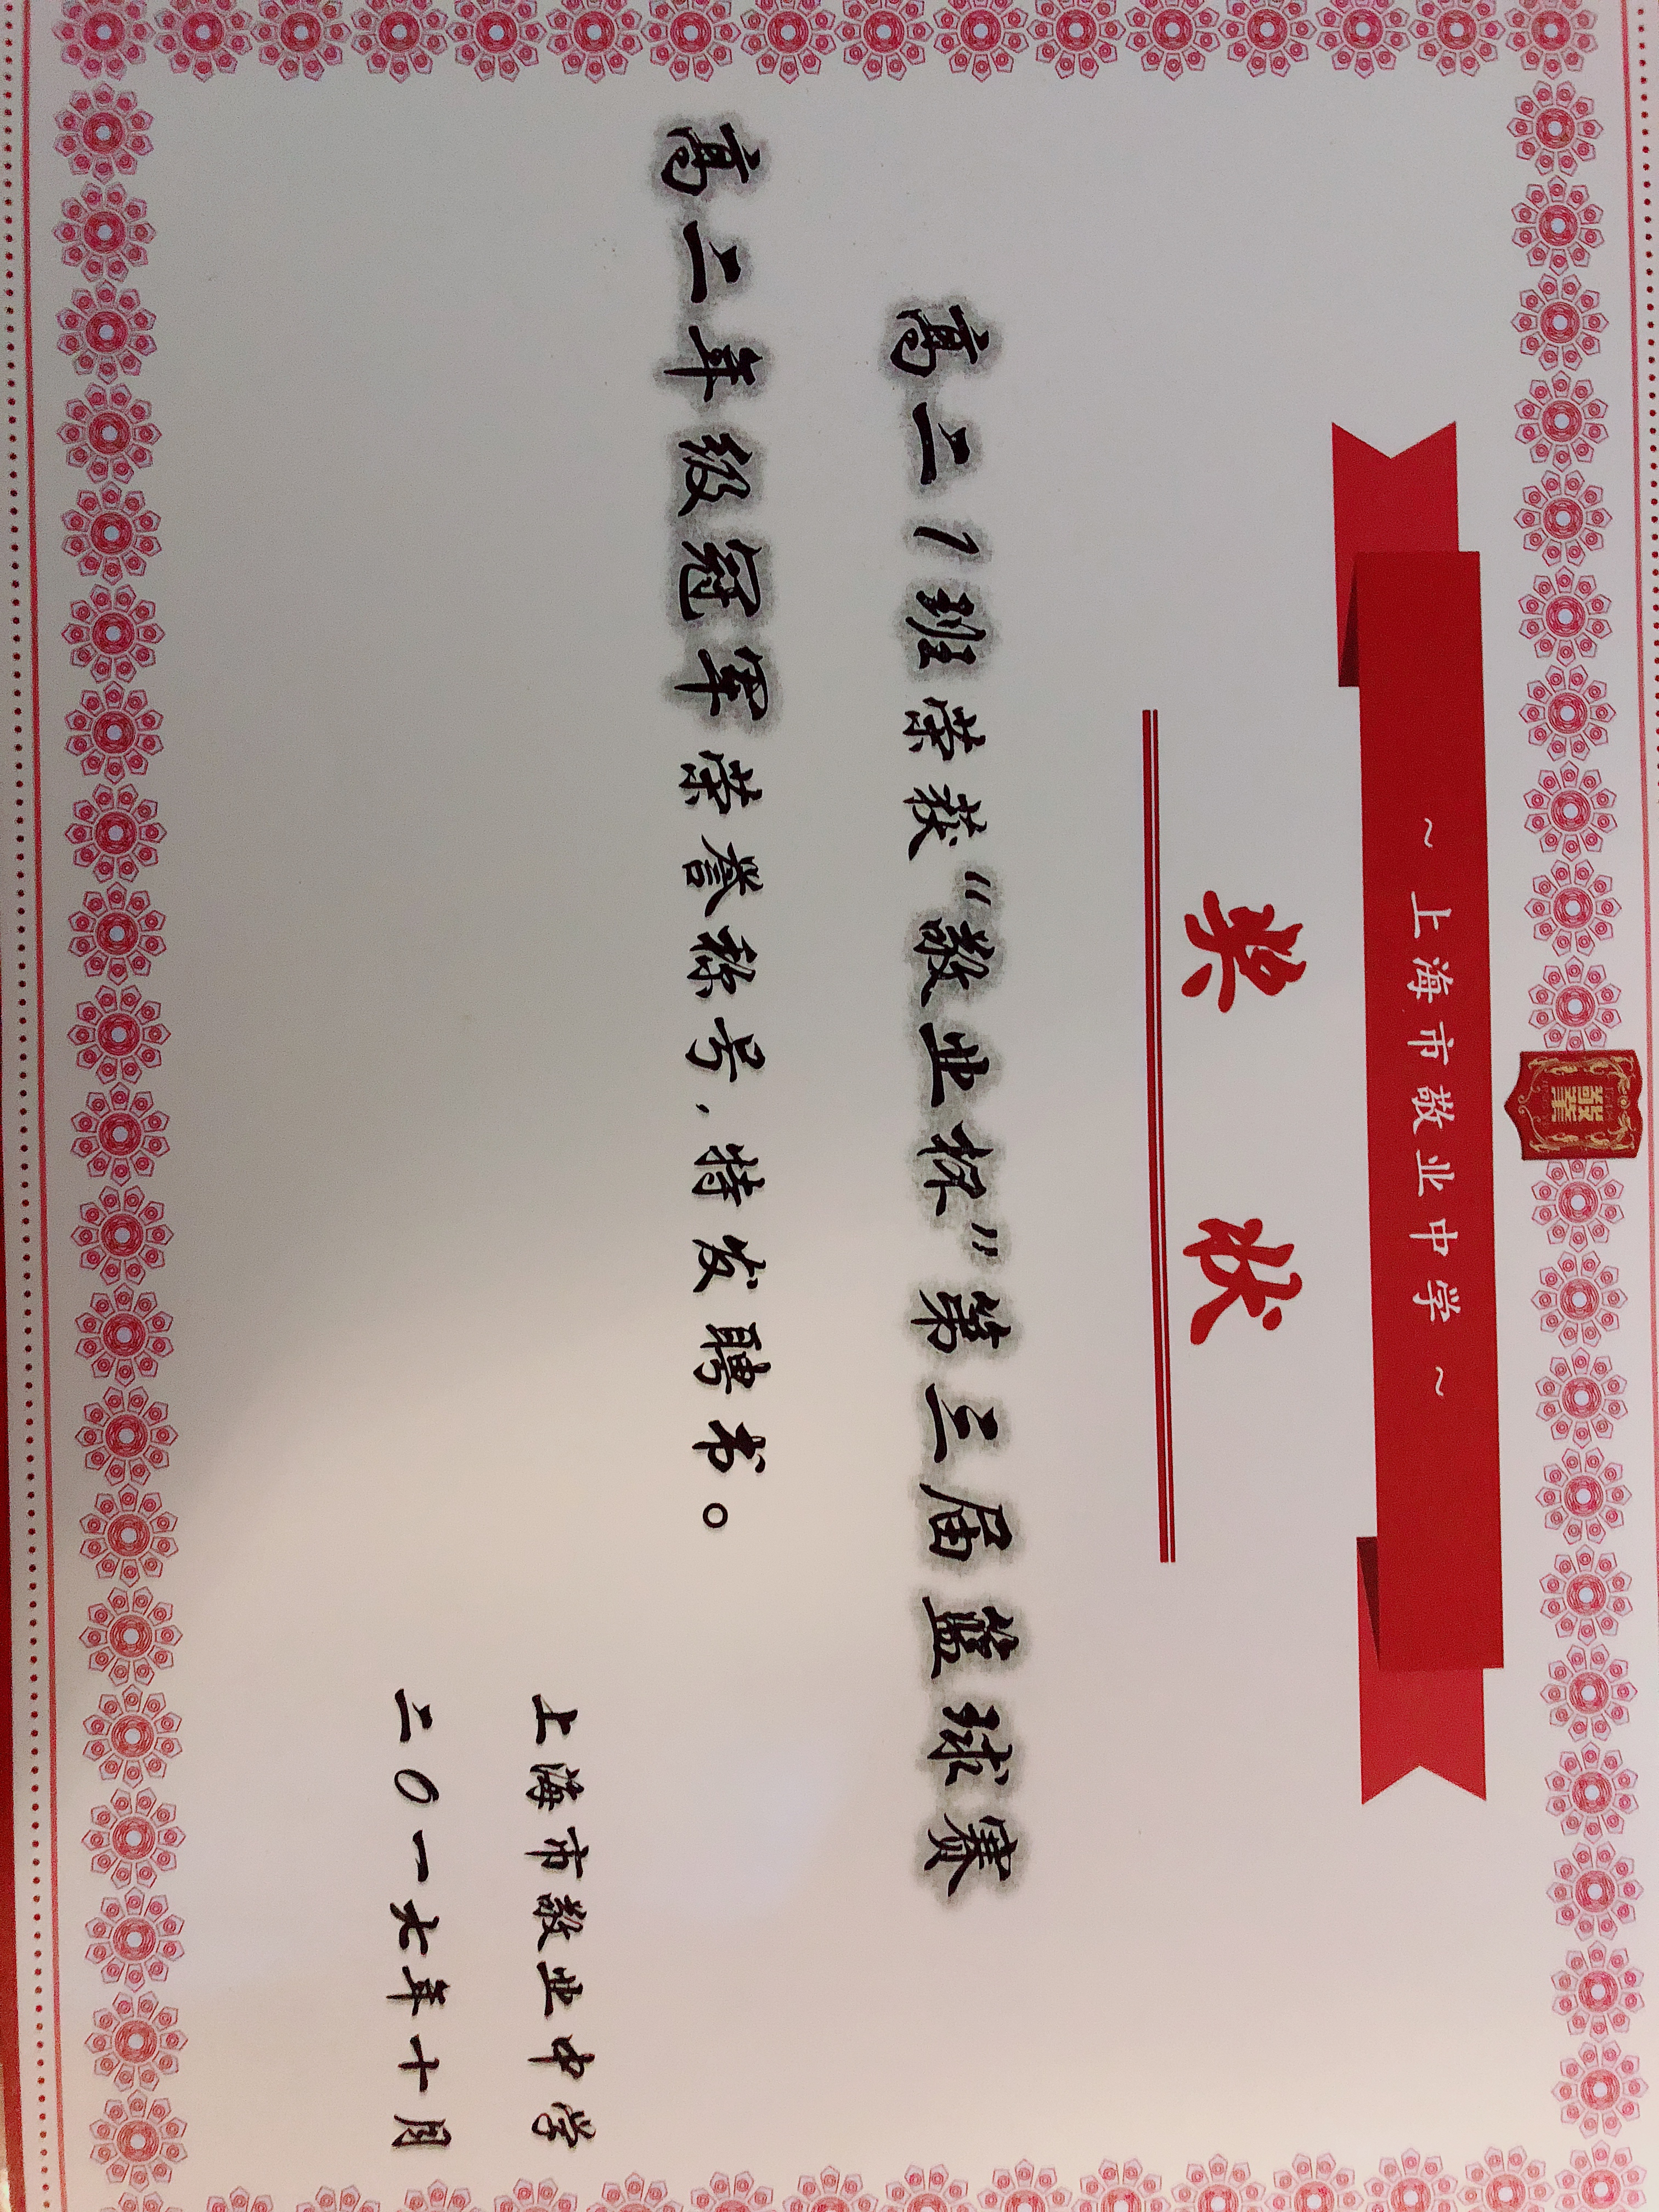 ~上海市敬业中学~
奖状
高二1班荣获“敬业杯”第三届篮球赛
高二年级冠军荣誉称号,特发聘书。
上海市敬业中学
二〇一七年十月